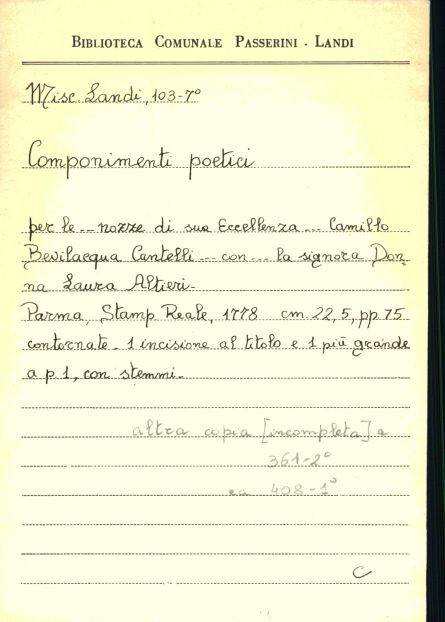 BIBLIOTECA COMUNALE PASSERINI - LANDI
Misc. Landi, 103-7°
Componimenti poetici
per le --- nozze di sua Eccellenza --- Camillo
Bevilacqua Cantelli --- con --- la signora Don-
na Laura Altieri.
Parma, Stamp. Reale, 1778 cm. 22,5, pp. 75
contornate. 1 incisione al titolo e 1 più grande
a p 1, con stemmi.
altra copia [incompleta] a
361-2°
ea 408-1°
C